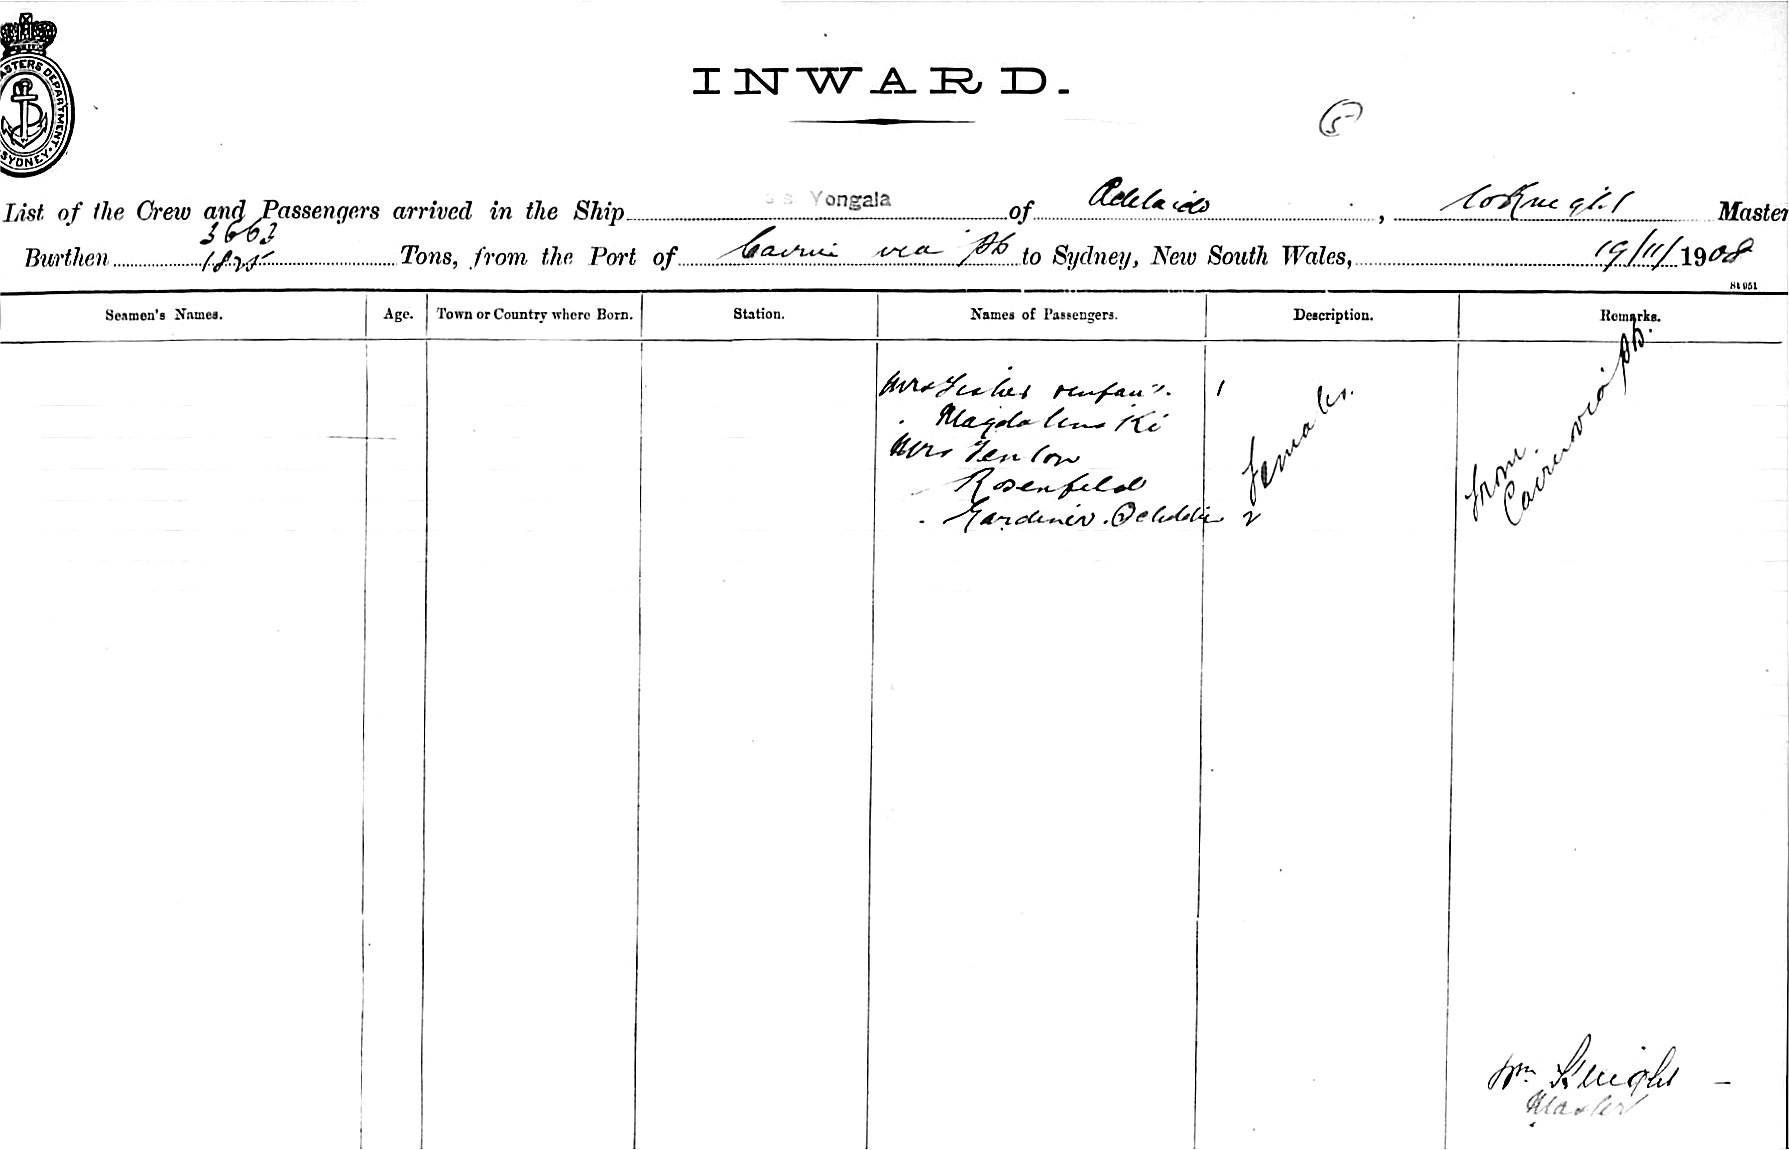 ASTERS DEPARTMENT. SYDNEY
INWARD.
5
List of the Crew and Passengers arrived in the Ship S.S. Yongala of Adelaide, Wm Knight Master
3663
Burthen 1825 Tons, from the Port of Cairns via Pts to Sydney, New South Wales, 19/11/1908
81951
Seamen's Names. Age. Town or Country where Born. Station. Names of Passengers. Description. Remarks.
Mrs Fisher & infant. 1
Magdalenski
Mrs Fenton
Rosenfeld
Gardiner. 2 children 2
Females.
From
Cairns via Pts.
Wm Knight
Master